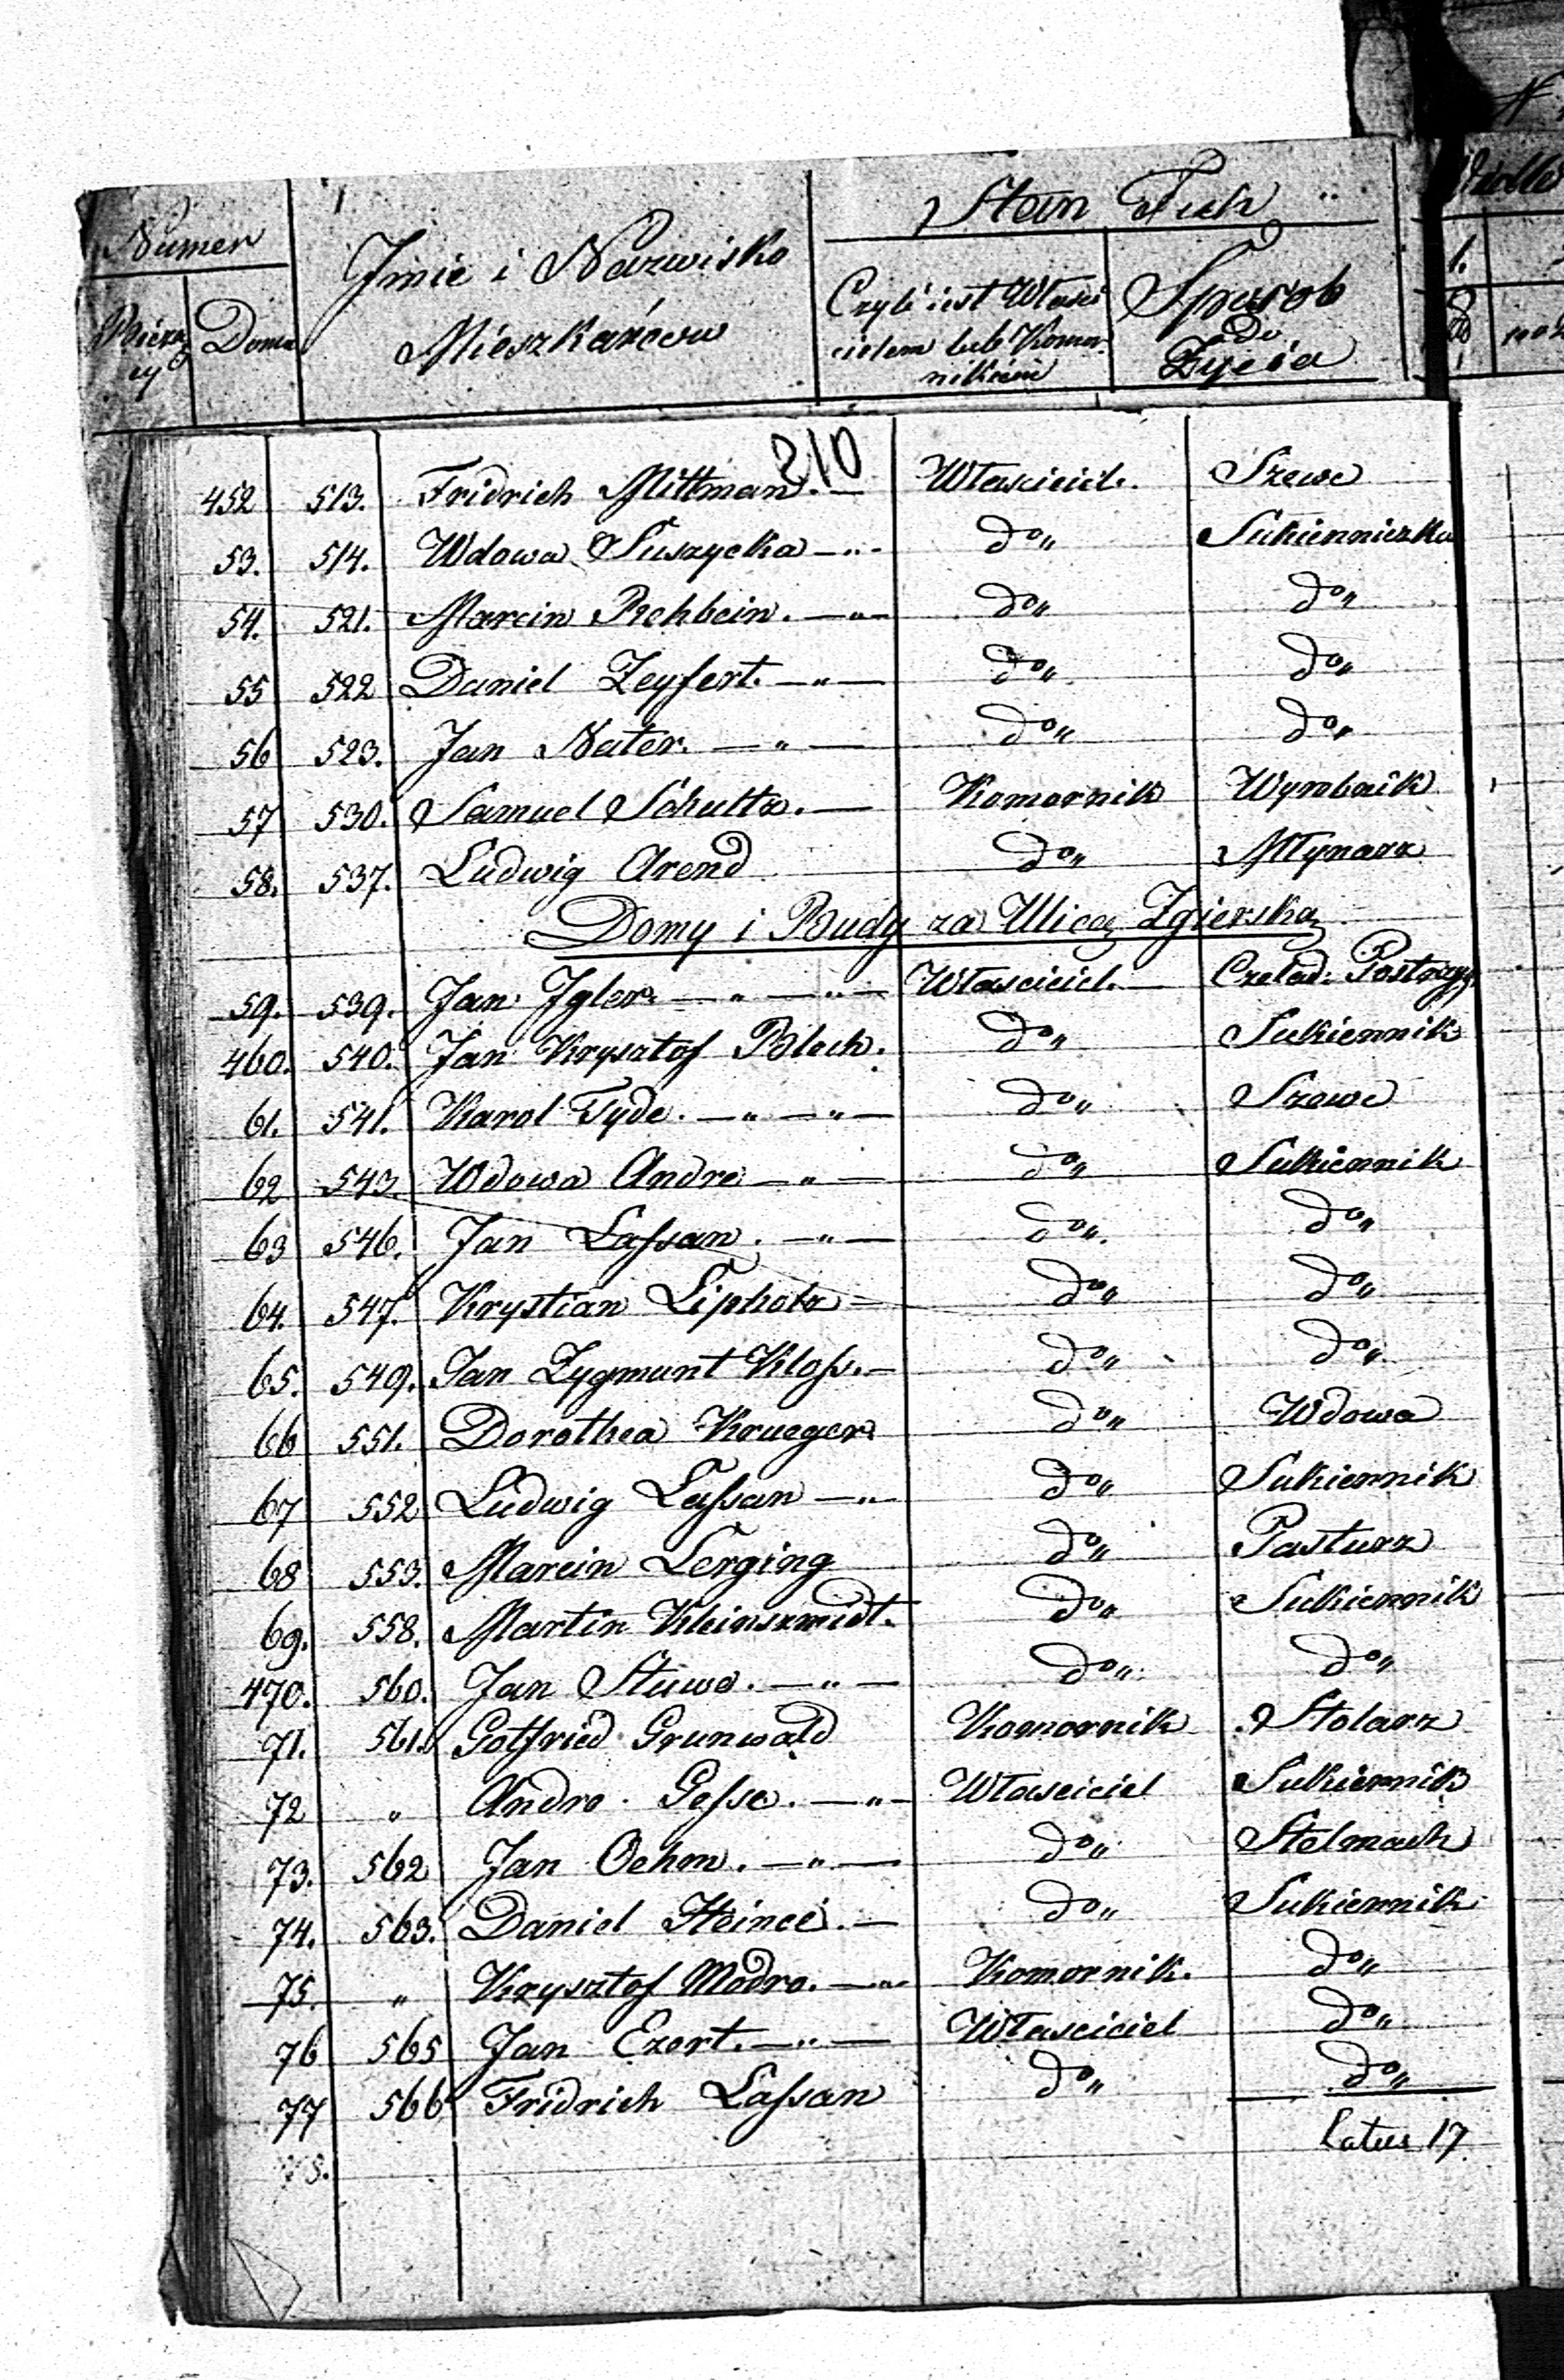 Numer
Bieżący
Domu
Jmie i Nazwisko
Mieszkańców
Stan Tych
Czyli iest Właści
cielem lub Komor
nikiem
Sposob
do
Życia
210
452 513. Fridrich Mittman. — Własciciel. Szewc
53. 514. Wdowa Suszycka —„— do„ Sukienniczka
54. 521. Marcin Rehbein. —„— do„ do„
55 522 Daniel Zeyfert. —„— do„ do„
56 523. Jan Nater. —„— do„ do„
57 530. Samuel Schultz. — Komornik Wyrobnik
58. 537. Ludwig Arend do„ Młynarz
Domy i Budy za Ulicą Zgierską
59. 539. Jan Jgler. —„—„— Własciciel. — Czelad: Postrzyg.
460. 540. Jan Krysztof Bloch. do„ Sukiennik
61. 541. Karol Tyde. —„—„— do„ Szewc
62 543. Wdowa Andre —„— do„ Sukiennik
63 546. Jan Laſsan. —„— do„ do„
64. 547. Krystian Lipholz — do„ do„
65. 549. Jan Zygmunt Kloſs. — do„ do„
66 551. Dorothea Krueger do„ Wdowa
67 552 Ludwig Laſsan —„— do„ Sukiennik
68 553. Marcin Lerging do„ Pasturz
69. 558. Martin Kleinszmidt. do„ Sukiennik
470. 560. Jan Stuwe. —„— do„ do„
71. 561. Gotfried Grunwald Komornik Stolarz
72 „ Andre Geſse. —„— Własciciel Sukiennik
73. 562 Jan Oehm. —„— do„ Stelmach
74. 563. Daniel Heince. — do„ Sukiennik
75. „ Krysztof Modro. —„— Komornik. do„
76 565 Jan Ezert. —„— Własciciel do„
77 566 Fridrich Laſsan do„ do„
latus 17.
78.